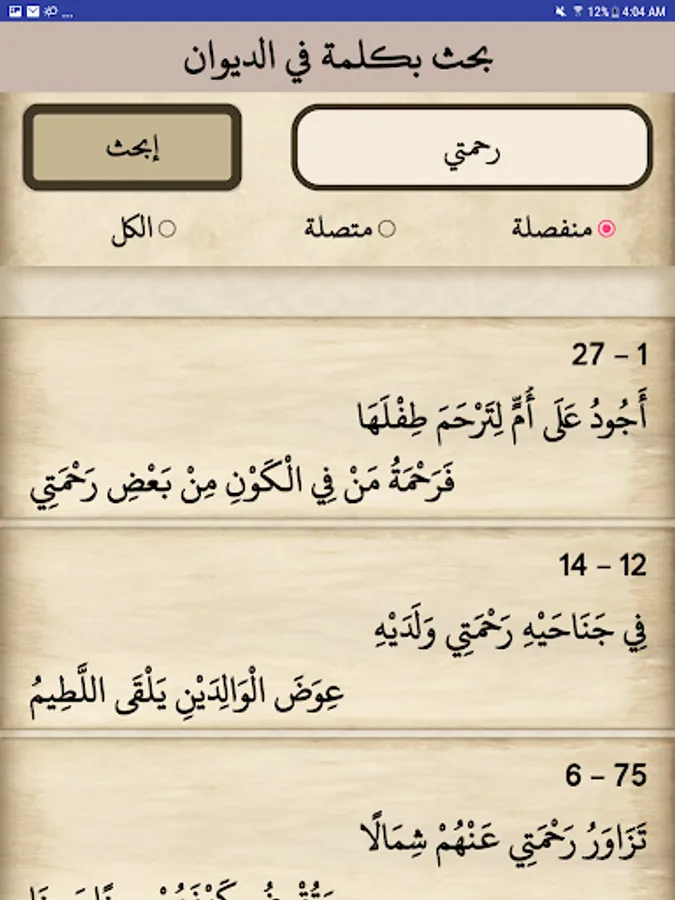 ... 12% 4:04 AM
بحث بكلمة في الديوان
رحمتي
إبحث
منفصلة متصلة الكل
1 – 27
أَجُودُ عَلَى أُمٍّ لِتَرْحَمَ طِفْلَهَا
فَرَحْمَةُ مَنْ فِي الْكَوْنِ مِنْ بَعْضِ رَحْمَتِي
12 – 14
فِي جَنَاحَيْهِ رَحْمَتِي وَلَدَيْهِ
عِوَضَ الْوَالِدَيْنِ يَلْقَى اللَّطِيمُ
75 – 6
تَزَاوَرُ رَحْمَتِي عَنْهُمْ شِمَالًا